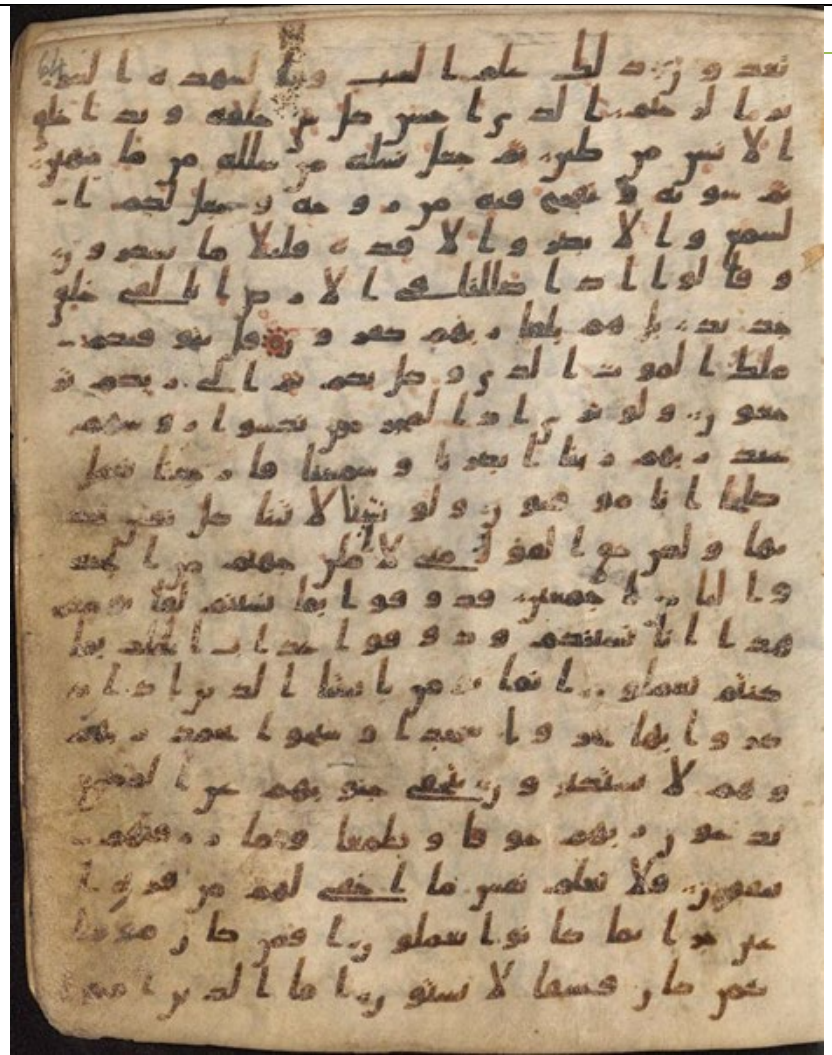 64
تعدون ذلك علم الغيب والشهدة العز
يز الرحيم الذي احسن كل شي خلقه وبدا خلق
الانسن من طين ثم جعل نسله من سللة من ما مهين
ثم سويه ونفخ فيه من روحه وجعل لكم ا
لسمع والابصر والافدة قليلا ما تشكرون
وقالوا اذا ضللنا في الارض انا لفي خلق
جديد بل هم بلقا ربهم كفرون قل يتوفيكم
ملك الموت الذي وكل بكم ثم الى ربكم تر
جعون ولو ترى اذ المجرمون نكسوا روسهم
عند ربهم ربنا ابصرنا وسمعنا فارجعنا نعمل
صلحا انا موقنون ولو شينا لاتينا كل نفس هد
يها ولكن حق القول مني لاملن جهنم من الجنة
والناس اجمعين فذوقوا بما نسيتم لقا يومكم
هذا انا نسينكم وذوقوا عذاب الخلد بما
كنتم تعملون انما يومن بايتنا الذين اذا ذ
كروا بها خروا سجدا وسبحوا بحمد ربهم
وهم لا يستكبرون تتجفى جنوبهم عن المضجع
يدعون ربهم خوفا وطمعا ومما رزقنهم
ينفقون فلا تعلم نفس ما اخفي لهم من قرة ا
عين جزا بما كانوا يعملون افمن كان مومنا
كمن كان فسقا لا يستون اما الذين امنو